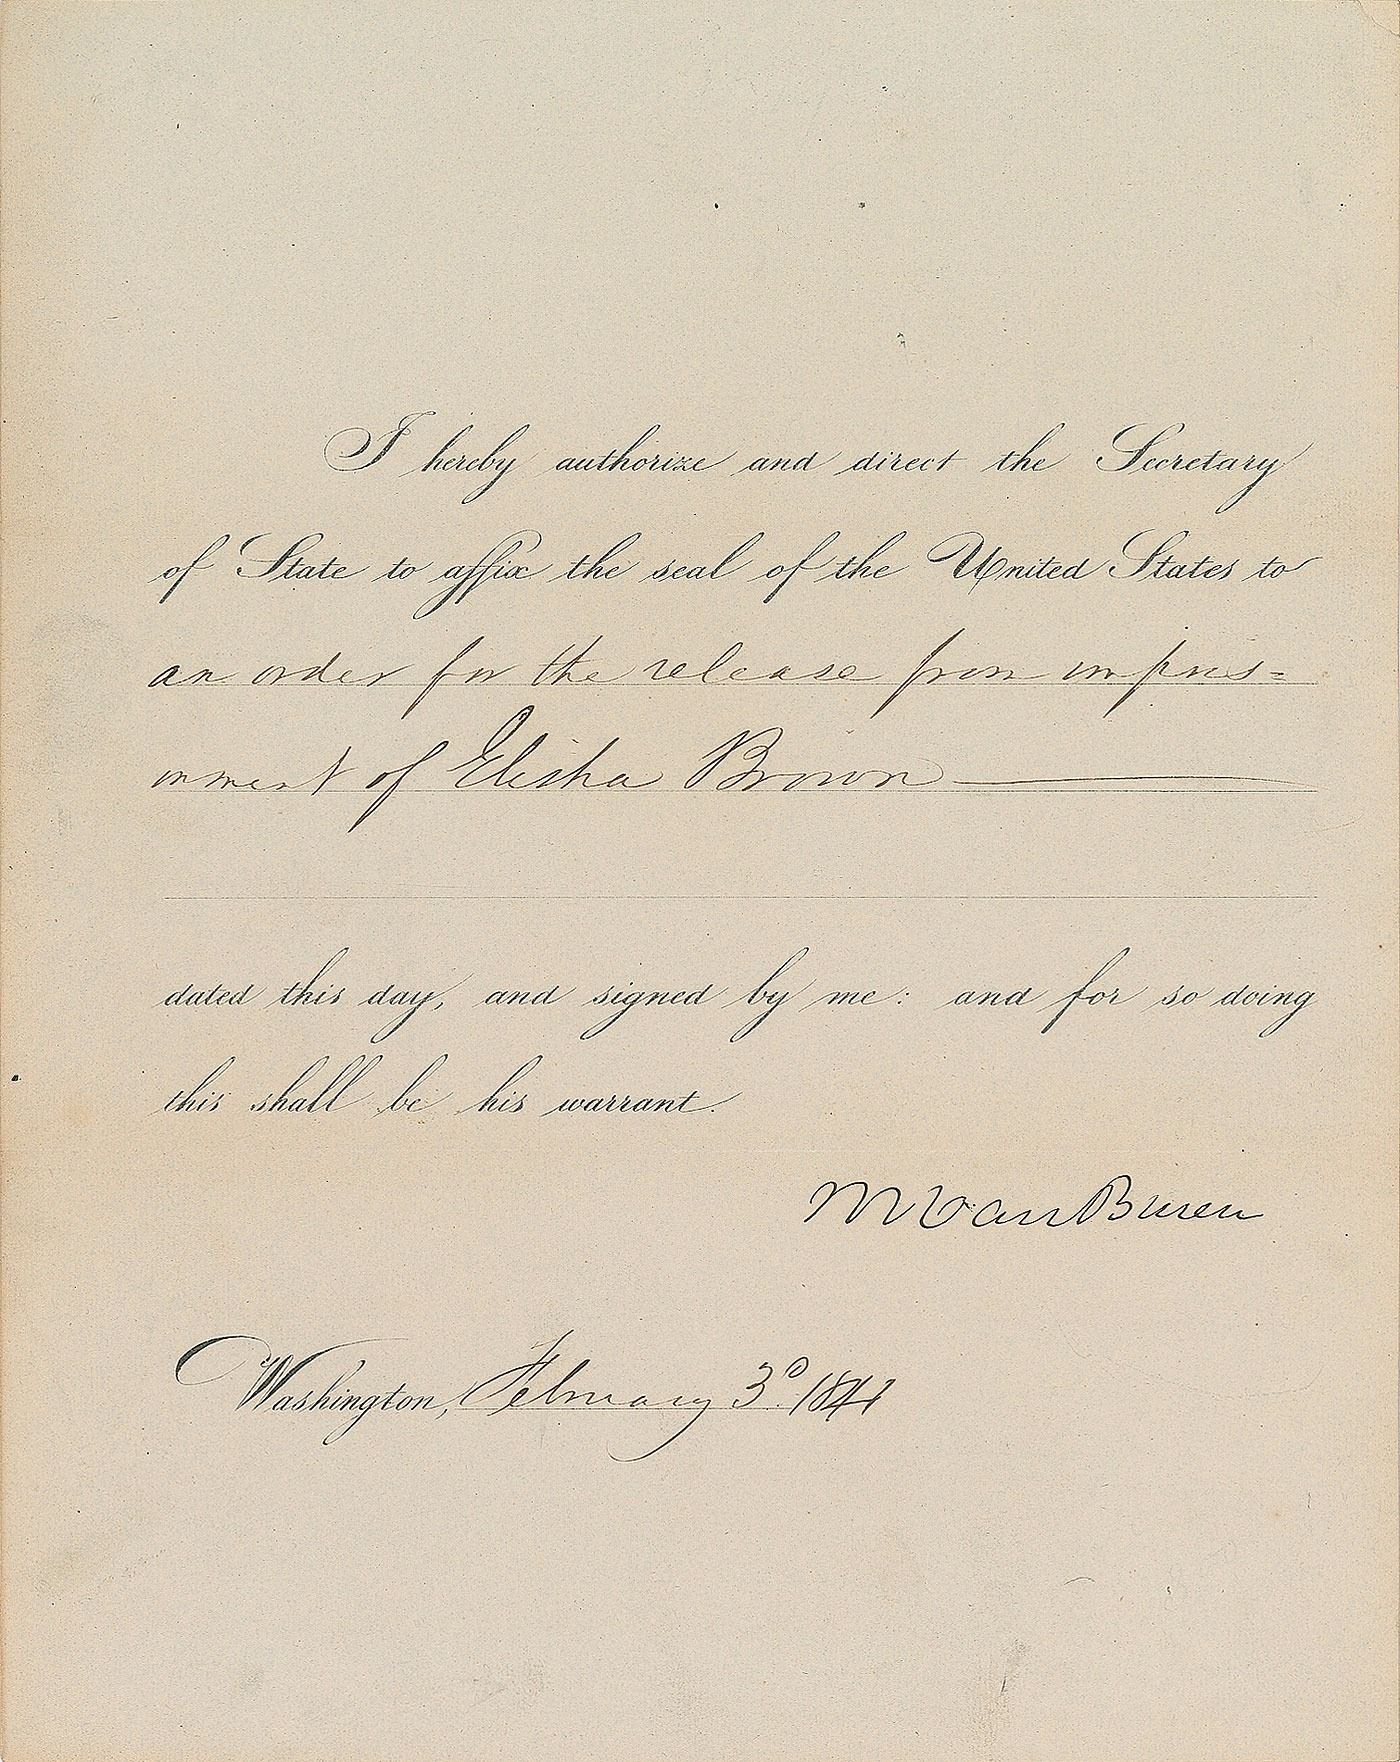 I hereby authorize and direct the Secretary
of State to affix the seal of the United States to
an order for the release from impris=
onment of Elisha Brown
dated this day, and signed by me: and for so doing
this shall be his warrant.
M Van Buren
Washington, February 3d. 1841